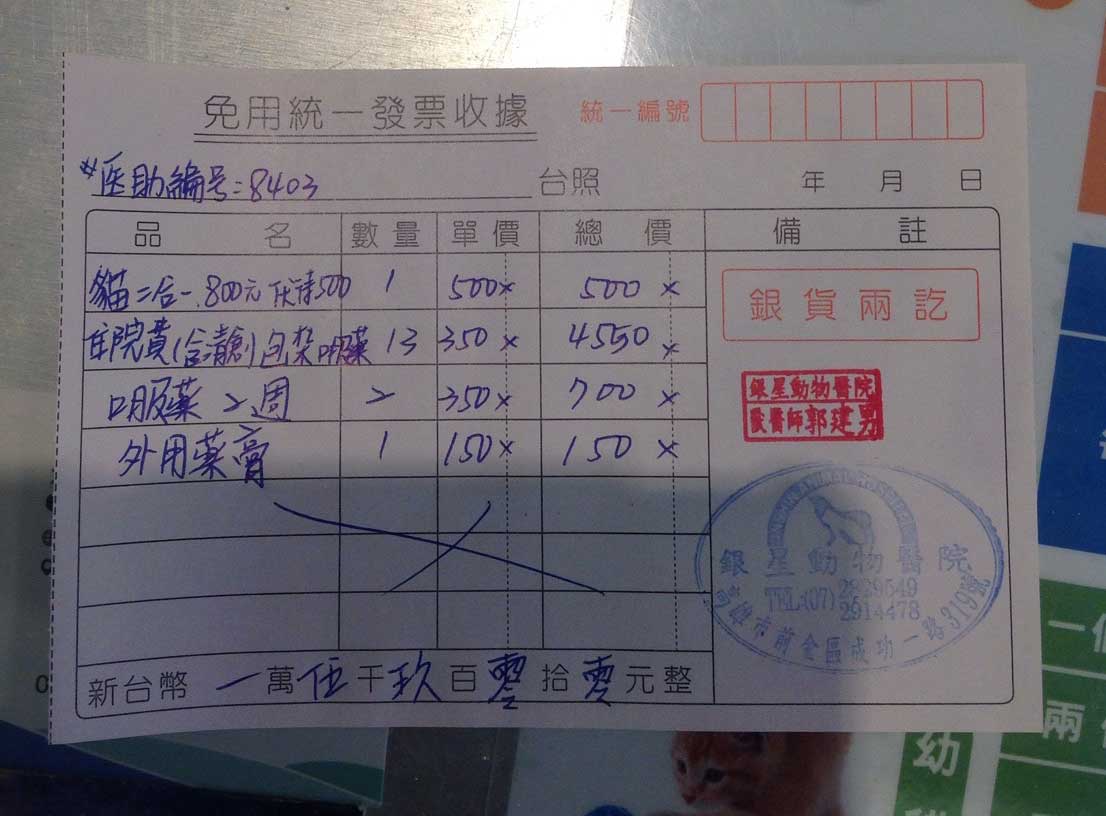 免用統一發票收據
統一編號
*医助編号:8403 台照 年 月 日
品 名 數量 單價 總 價 備 註
貓二合一.800元 優待500 1 500x 500 x
住院費(含清創)包紮口服藥 13 350 x 4550 x
口服藥 2週 2 350x 700 x
外用藥膏 1 150x 150 x
新台幣 一萬伍千玖百零拾零元整
銀貨兩訖
銀星動物醫院
獸醫師郭建男
銀星動物醫院
TEL:(07)
2914478
高雄市前金區成功一路319號
一
兩
幼